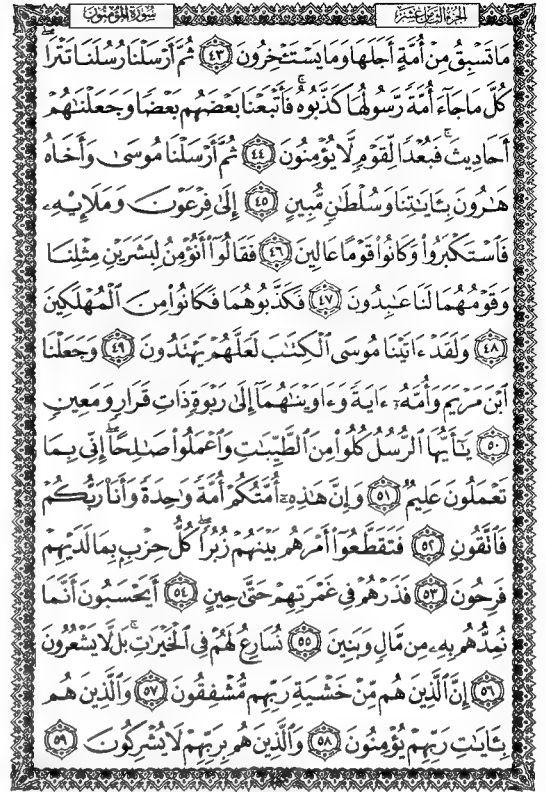 سُورَةُ المُؤْمِنُون
الجزء الثامن عشر
مَا تَسْبِقُ مِنْ أُمَّةٍ أَجَلَهَا وَمَا يَسْتَـْٔخِرُونَ ٤٣ ثُمَّ أَرْسَلْنَا رُسُلَنَا تَتْرَا ۖ
كُلَّ مَا جَآءَ أُمَّةً رَّسُولُهَا كَذَّبُوهُ ۚ فَأَتْبَعْنَا بَعْضَهُم بَعْضًا وَجَعَلْنَٰهُمْ
أَحَادِيثَ ۚ فَبُعْدًا لِّقَوْمٍ لَّا يُؤْمِنُونَ ٤٤ ثُمَّ أَرْسَلْنَا مُوسَىٰ وَأَخَاهُ
هَٰرُونَ بِـَٔايَٰتِنَا وَسُلْطَٰنٍ مُّبِينٍ ٤٥ إِلَىٰ فِرْعَوْنَ وَمَلَإِي۟هِۦ
فَٱسْتَكْبَرُوا۟ وَكَانُوا۟ قَوْمًا عَالِينَ ٤٦ فَقَالُوٓا۟ أَنُؤْمِنُ لِبَشَرَيْنِ مِثْلِنَا
وَقَوْمُهُمَا لَنَا عَٰبِدُونَ ٤٧ فَكَذَّبُوهُمَا فَكَانُوا۟ مِنَ ٱلْمُهْلَكِينَ
٤٨ وَلَقَدْ ءَاتَيْنَا مُوسَى ٱلْكِتَٰبَ لَعَلَّهُمْ يَهْتَدُونَ ٤٩ وَجَعَلْنَا
ٱبْنَ مَرْيَمَ وَأُمَّهُۥٓ ءَايَةً وَءَاوَيْنَٰهُمَآ إِلَىٰ رَبْوَةٍ ذَاتِ قَرَارٍ وَمَعِينٍ
٥٠ يَٰٓأَيُّهَا ٱلرُّسُلُ كُلُوا۟ مِنَ ٱلطَّيِّبَٰتِ وَٱعْمَلُوا۟ صَٰلِحًا ۖ إِنِّى بِمَا
تَعْمَلُونَ عَلِيمٌ ٥١ وَإِنَّ هَٰذِهِۦٓ أُمَّتُكُمْ أُمَّةً وَٰحِدَةً وَأَنَا۠ رَبُّكُمْ
فَٱتَّقُونِ ٥٢ فَتَقَطَّعُوٓا۟ أَمْرَهُم بَيْنَهُمْ زُبُرًا ۖ كُلُّ حِزْبٍۭ بِمَا لَدَيْهِمْ
فَرِحُونَ ٥٣ فَذَرْهُمْ فِى غَمْرَتِهِمْ حَتَّىٰ حِينٍ ٥٤ أَيَحْسَبُونَ أَنَّمَا
نُمِدُّهُم بِهِۦ مِن مَّالٍ وَبَنِينَ ٥٥ نُسَارِعُ لَهُمْ فِى ٱلْخَيْرَٰتِ ۚ بَل لَّا يَشْعُرُونَ
٥٦ إِنَّ ٱلَّذِينَ هُم مِّنْ خَشْيَةِ رَبِّهِم مُّشْفِقُونَ ٥٧ وَٱلَّذِينَ هُم
بِـَٔايَٰتِ رَبِّهِمْ يُؤْمِنُونَ ٥٨ وَٱلَّذِينَ هُم بِرَبِّهِمْ لَا يُشْرِكُونَ ٥٩